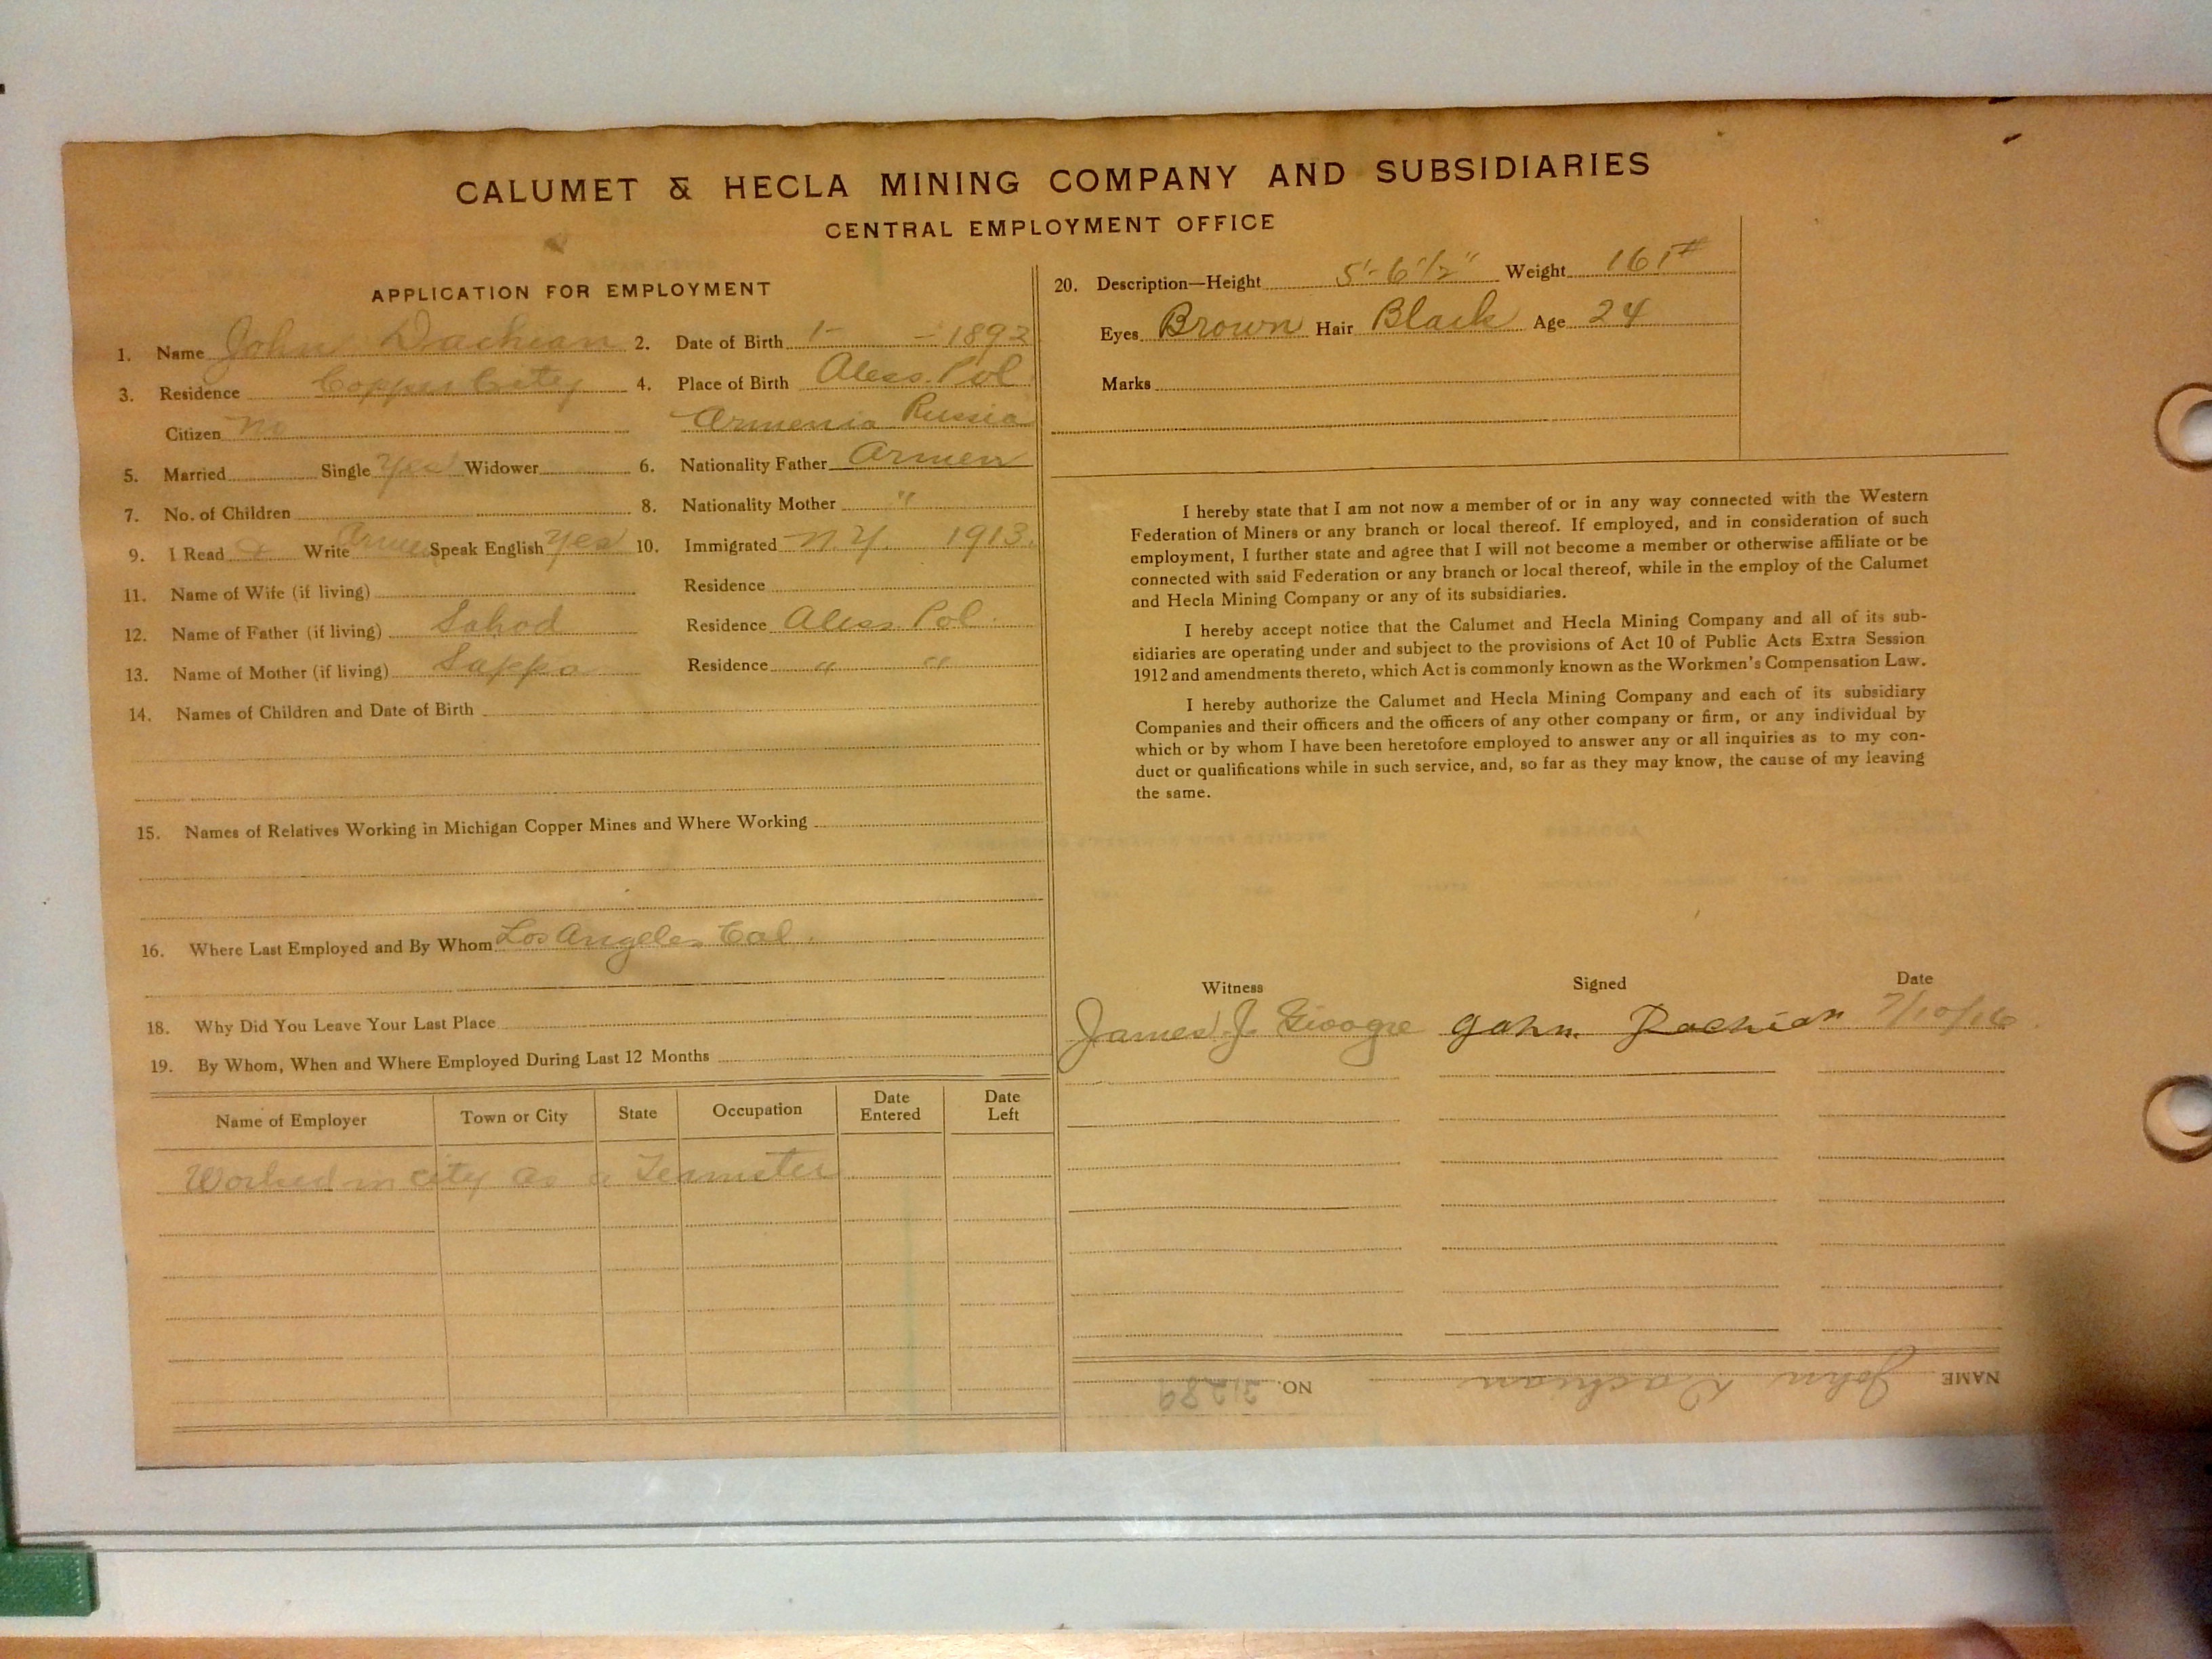 CALUMET & HECLA MINING COMPANY AND SUBSIDIARIES
CENTRAL EMPLOYMENT OFFICE
APPLICATION FOR EMPLOYMENT
1. Name John Dachian 2. Date of Birth 1- - 1892
3. Residence Copper City 4. Place of Birth Aless. Pol
Citizen no Armenia Russia
5. Married Single Yes Widower 6. Nationality Father Armen
7. No. of Children 8. Nationality Mother "
9. I Read & Write Armen Speak English Yes 10. Immigrated N.Y. 1913.
11. Name of Wife (if living) Residence
12. Name of Father (if living) Sahod Residence Aless. Pol.
13. Name of Mother (if living) Sappa Residence " "
14. Names of Children and Date of Birth
15. Names of Relatives Working in Michigan Copper Mines and Where Working
16. Where Last Employed and By Whom Los Angeles Cal.
18. Why Did You Leave Your Last Place
19. By Whom, When and Where Employed During Last 12 Months
Name of Employer Town or City State Occupation Date Entered Date Left
Worked in city as a Teamster
20. Description—Height 5'-6 1/2" Weight 161#
Eyes Brown Hair Black Age 24
Marks
I hereby state that I am not now a member of or in any way connected with the Western
Federation of Miners or any branch or local thereof. If employed, and in consideration of such
employment, I further state and agree that I will not become a member or otherwise affiliate or be
connected with said Federation or any branch or local thereof, while in the employ of the Calumet
and Hecla Mining Company or any of its subsidiaries.
I hereby accept notice that the Calumet and Hecla Mining Company and all of its sub-
sidiaries are operating under and subject to the provisions of Act 10 of Public Acts Extra Session
1912 and amendments thereto, which Act is commonly known as the Workmen's Compensation Law.
I hereby authorize the Calumet and Hecla Mining Company and each of its subsidiary
Companies and their officers and the officers of any other company or firm, or any individual by
which or by whom I have been heretofore employed to answer any or all inquiries as to my con-
duct or qualifications while in such service, and, so far as they may know, the cause of my leaving
the same.
Witness Signed Date
James J. John Dachian 7/10/16
NAME John Dachian NO. 31289